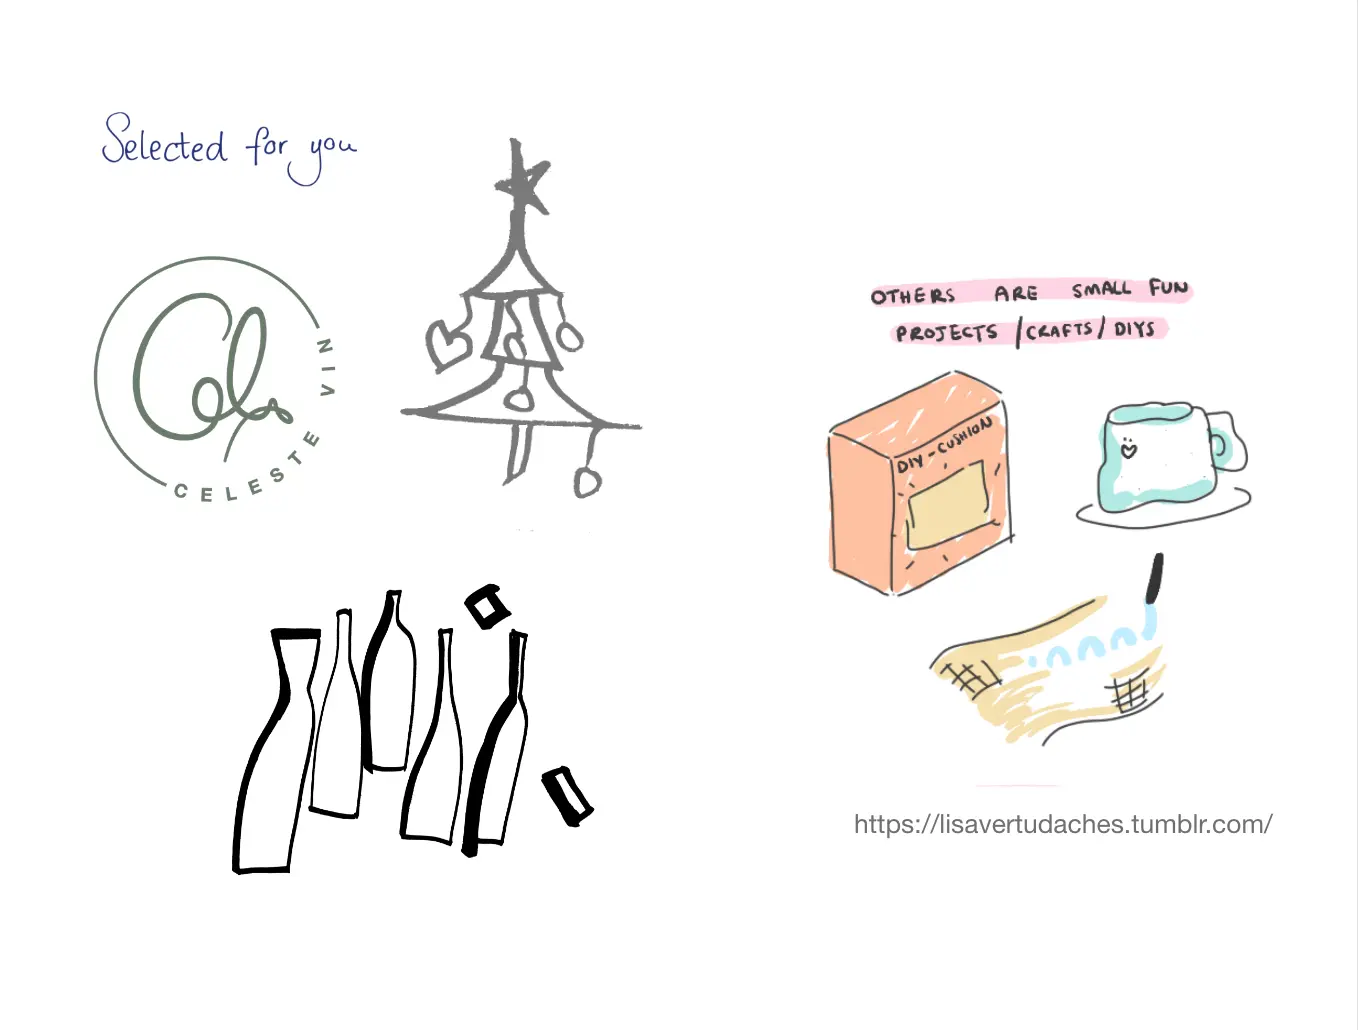 Selected for you
CELESTE VIN
OTHERS ARE SMALL FUN
PROJECTS / CRAFTS / DIYS
DIY-CUSHION
https://lisavertudaches.tumblr.com/